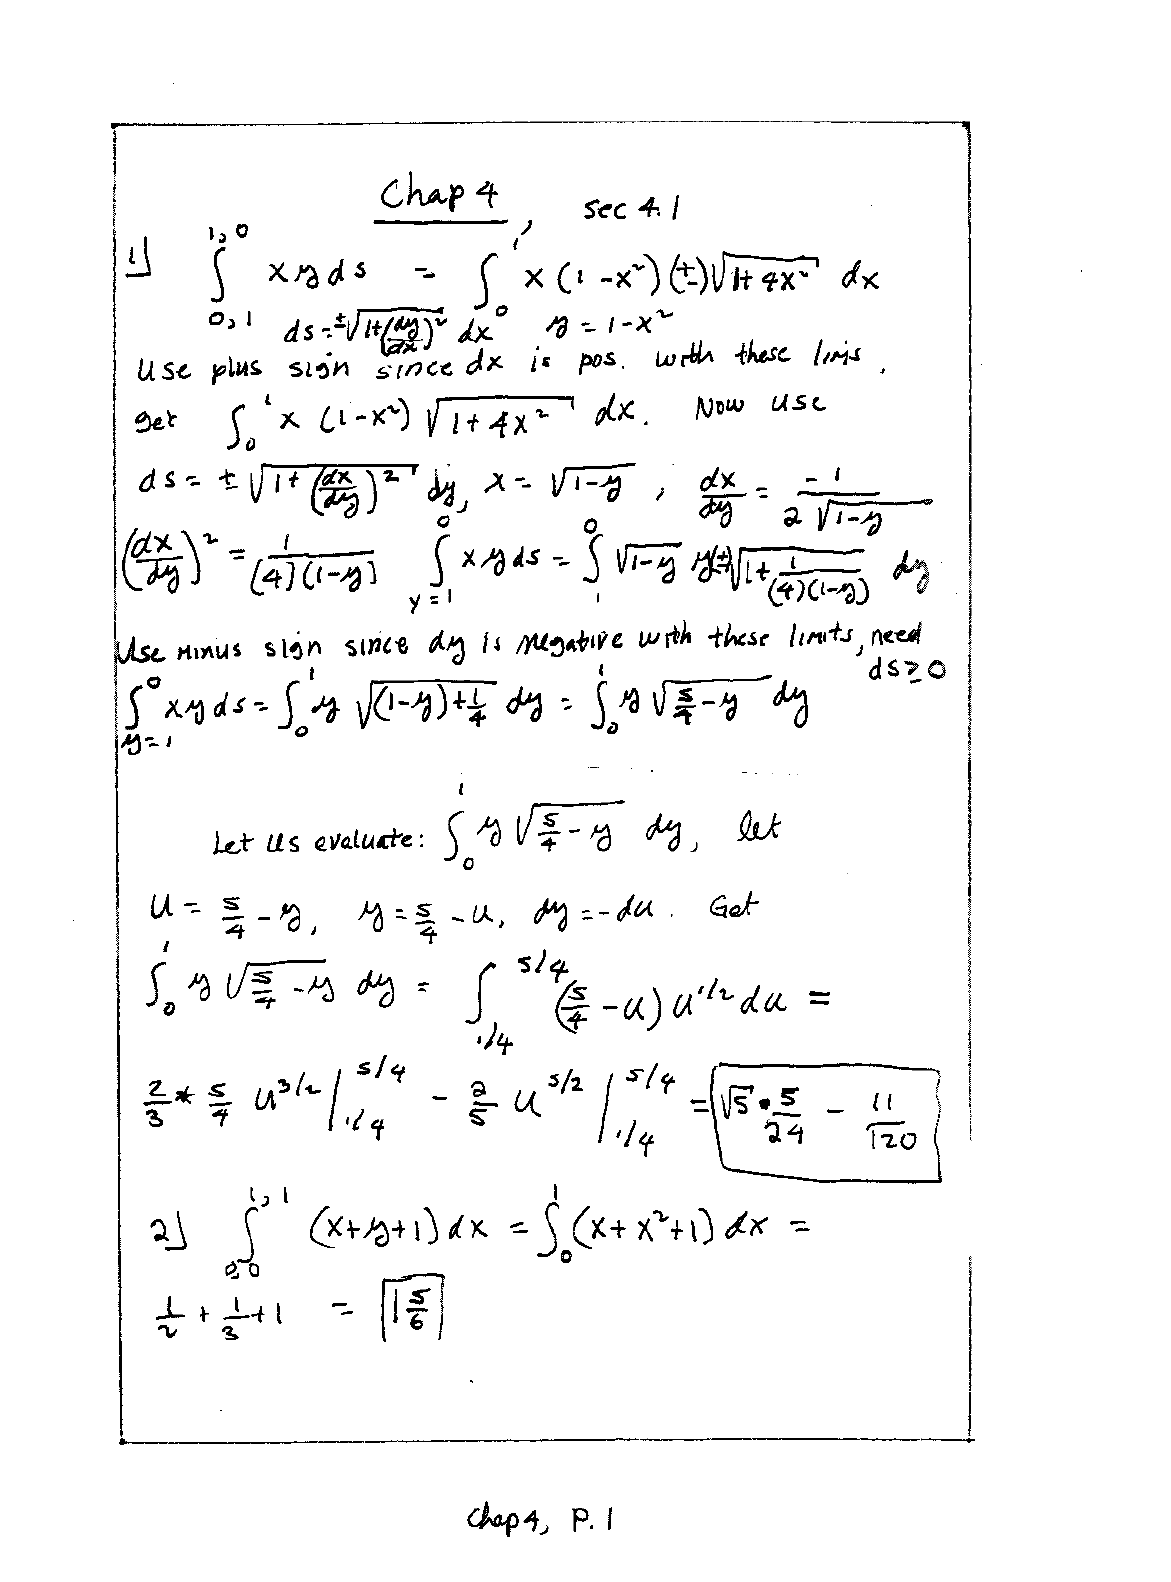 Chap 4, sec 4.1
1) ∫_{0,1}^{1,0} x y ds = ∫_0^1 x (1 - x²) (±) √(1 + 4x²) dx
ds = ±√(1 + (dy/dx)²) dx y = 1 - x²
Use plus sign since dx is pos. with these lims,
get ∫_0^1 x (1 - x²) √(1 + 4x²) dx. Now use
ds = ± √(1 + (dx/dy)²) dy, x = √(1 - y), dx/dy = -1/(2√(1 - y))
(dx/dy)² = 1/((4)(1 - y)) ∫_{y=1}^0 x y ds = ∫_1^0 √(1 - y) y (±) √(1 + 1/((4)(1 - y))) dy
Use minus sign since dy is negative with these limits, need
ds ≥ 0
∫_{y=1}^0 x y ds = ∫_0^1 y √((1 - y) + 1/4) dy = ∫_0^1 y √(5/4 - y) dy
Let us evaluate: ∫_0^1 y √(5/4 - y) dy, let
u = 5/4 - y, y = 5/4 - u, dy = -du. Get
∫_0^1 y √(5/4 - y) dy = ∫_{1/4}^{5/4} (5/4 - u) u^{1/2} du =
2/3 * 5/4 u^{3/2} |_{1/4}^{5/4} - 2/5 u^{5/2} |_{1/4}^{5/4} = √5 • 5/24 - 11/120
2) ∫_{0,0}^{1,1} (x + y + 1) dx = ∫_0^1 (x + x² + 1) dx =
1/2 + 1/3 + 1 = 1 5/6
Chap 4, P. 1